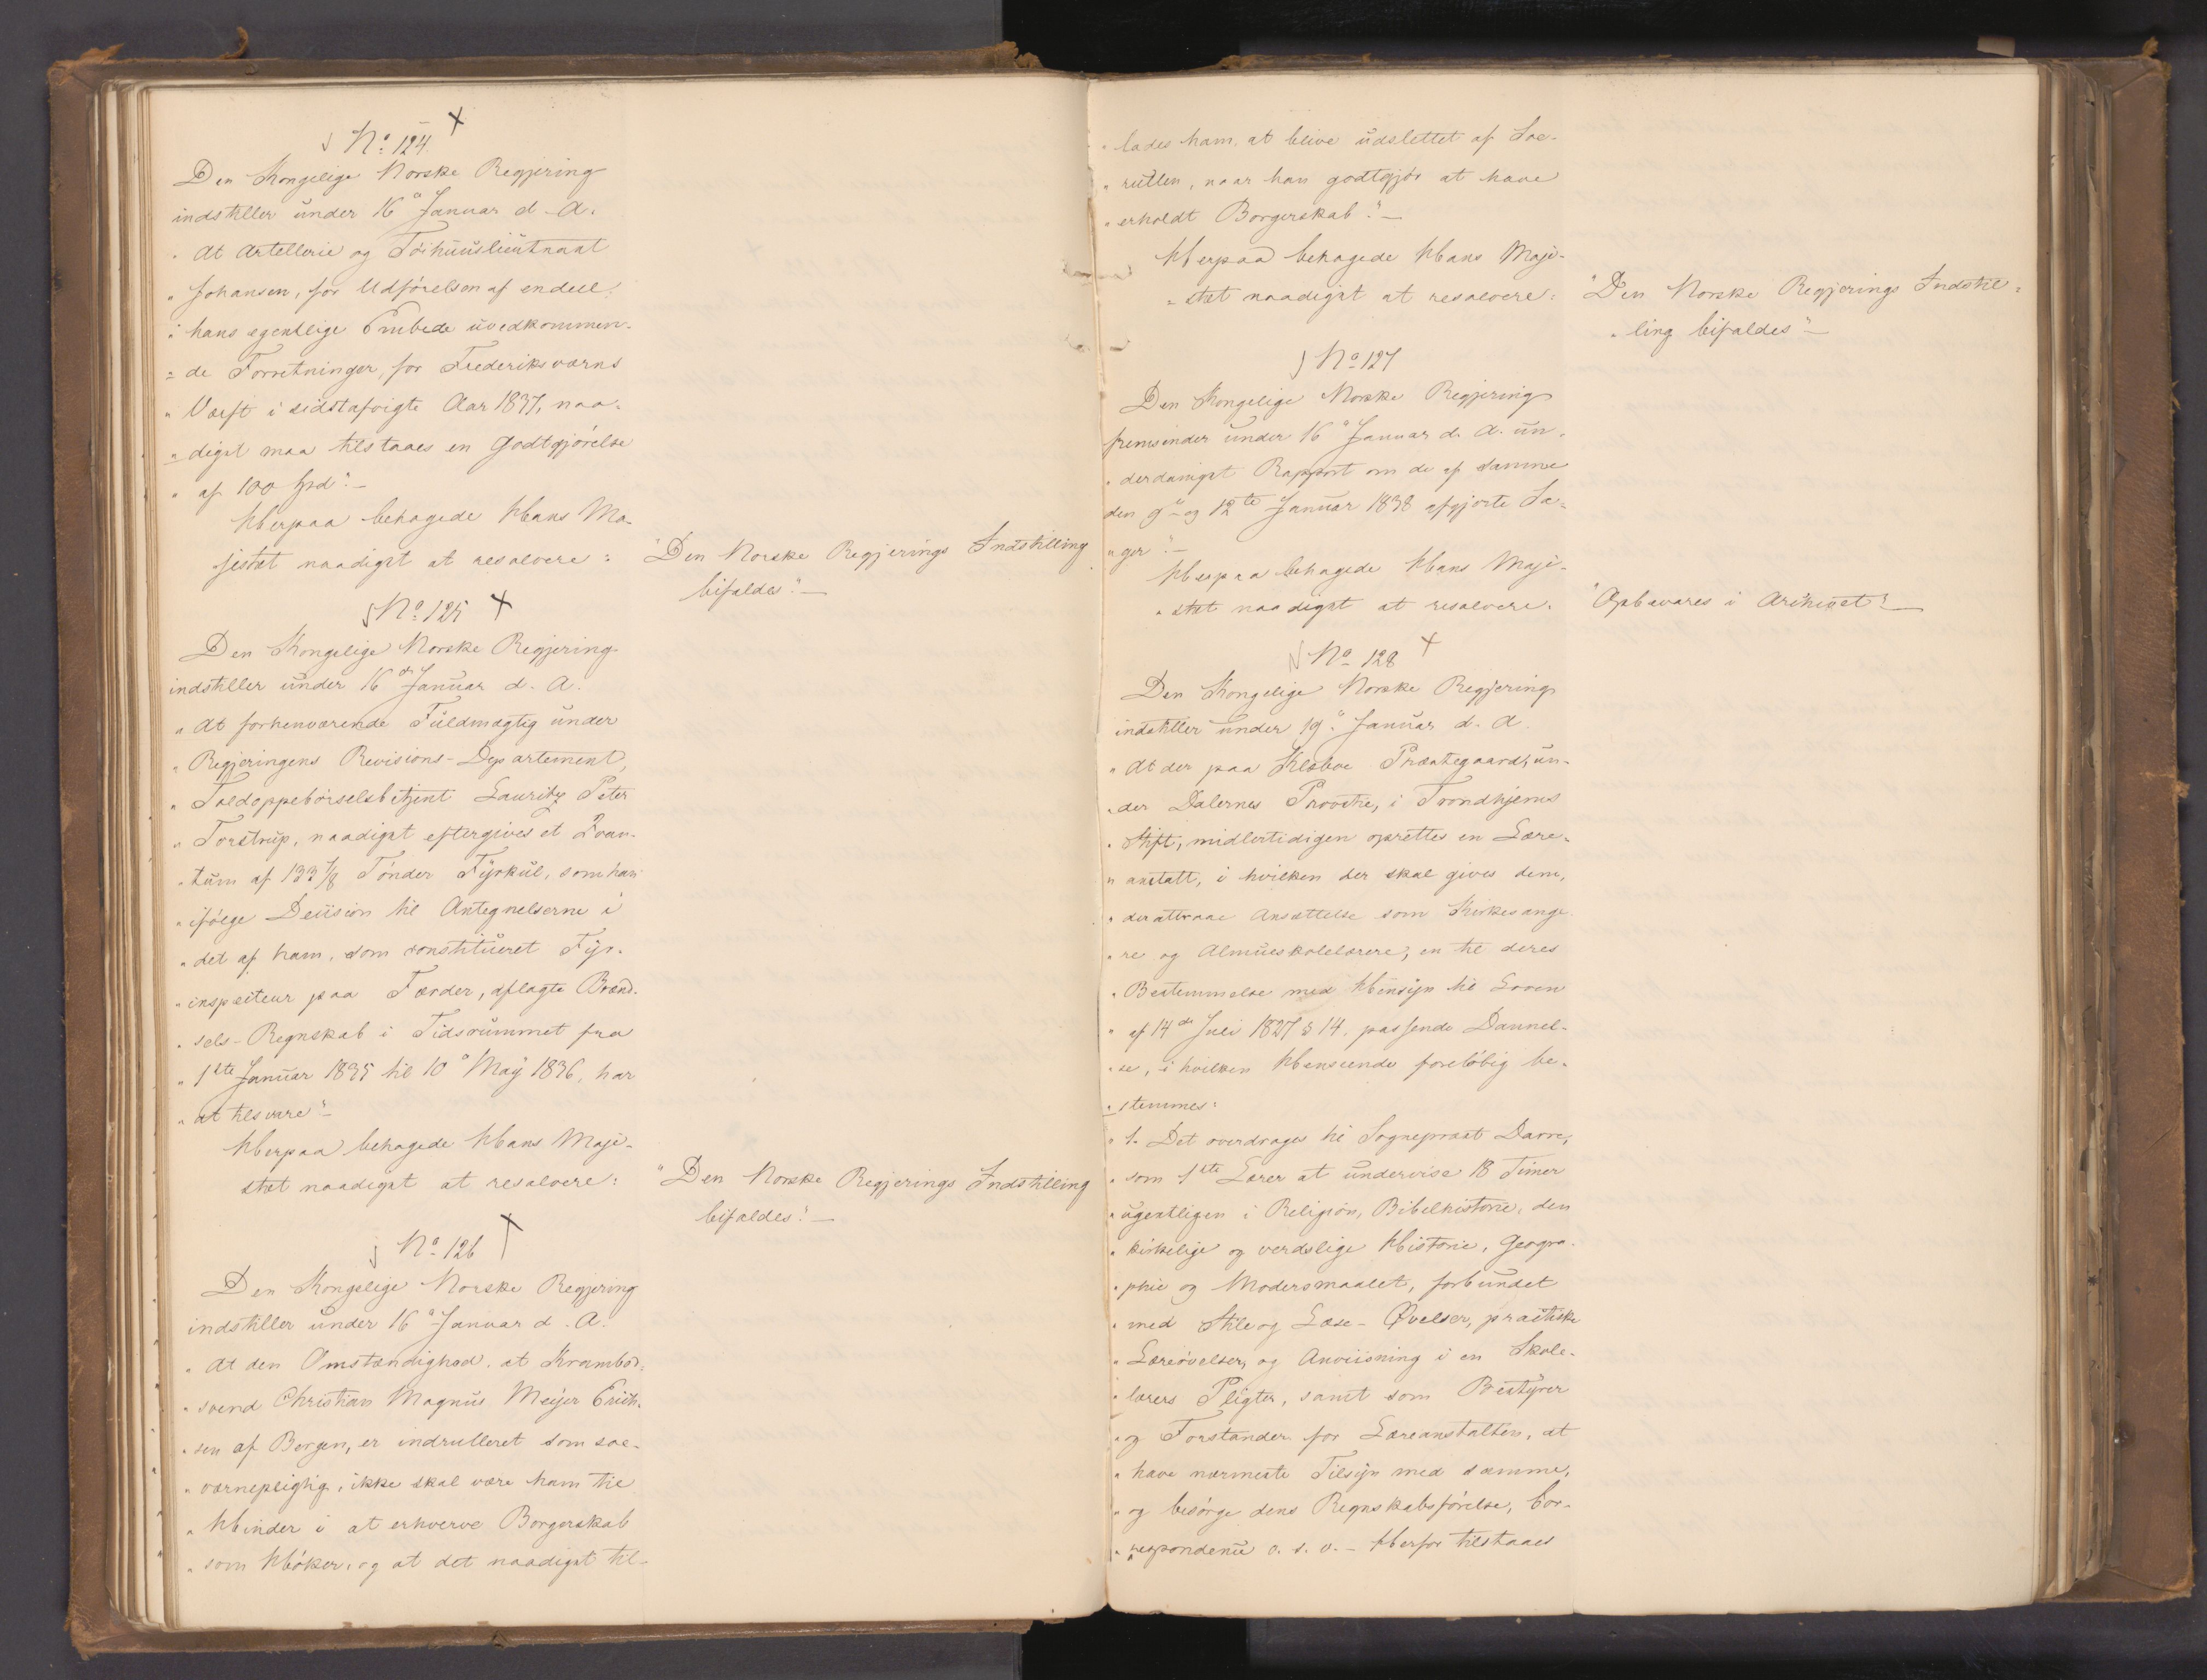 No 124.
Den Kongelige Norske Regjering
indstiller under 16de Januar d. A.
" At Artellerie og Töihuuslieutnant
" Johansen, for Udförelsen af endeel
" hans egentlige Embede uvedkommen-
" de Forretninger, for Frederiksværns
" Værft i sidstafvigte Aar 1837, naa-
" digst maa tilstaaes en Godtgjörelse
" af 100 Spd".-
Herpaa behagede Hans Ma-
jestæt naadigst at resolvere:
"Den Norske Regjerings Indstilling
bifaldes".-
No 125
Den Kongelige Norske Regjering
indstiller under 16de Januar d. A.
" At forhenværende Fuldmægtig under
" Regjeringens Revisions-Departement,
" Toldoppebörselsbetjent Lauritz Peter
" Torstrup, naadigst eftergives et Qvan-
" tum af 133 7/8 Tönder Fyrkul, som han
" ifölge Decision til Antegnelserne i
" det af ham, som constitueret Fyr-
" inspecteur paa Færder, aflagte Brænd-
" sels-Regnskab i Tidsrummet fra
" 1ste Januar 1835 til 10de May 1836, har
" at tilsvare"-
Herpaa behagede Hans Maje-
stæt naadigst at resolvere:
"Den Norske Regjerings Indstilling
bifaldes".-
No 126
Den Kongelige Norske Regjering
indstiller under 16de Januar d. A.
" At den Omstændighed, at Krambod-
" svend Christian Magnus Meyer Erich-
" sen af Bergen, er indrulleret som söe-
" værnepligtig, ikke skal være ham til
" Hinder i at erhverve Borgerskab
" som Höker, og at det naadigst til-
" lades ham, at blive udslettet af Söe-
" rullen, naar han godtgjör at have
" erholdt Borgerskab".-
Herpaa behagede Hans Maje-
" stæt naadigst at resolvere:
"Den Norske Regjerings Indstil-
" ling bifaldes"-
No 127
Den Kongelige Norske Regjering
fremsender under 16de Januar d. A. un-
" derdanigst Rapport om de af samme
den 9de og 12te Januar 1838 afgjorte Sa-
" ger".-
Herpaa behagede Hans Maje-
" stæt naadigst at resolvere.
"Opbevares i Archivet"-
No 128
Den Kongelige Norske Regjering
indstiller under 19de Januar d. A.
" At der paa Klæboe Præstegaard, un-
" der Dalernes Provstie, i Trondhjems
" Stift, midlertidigen oprettes en Lære-
" anstalt, i hvilken der skal gives dem,
" der attraae Ansættelse som Kirkesange-
" re og Almueskolelærere, en til deres
" Bestemmelse med Hensyn til Loven
" af 14de Juli 1827 § 14. passende Dannel-
" se, i hvilken Henseende foreløbig be-
" stemmes:
" 1. Det overdrages til Sognepræst Darre,
" som 1ste Lærer at undervise 18 Timer
" ugentligen i Religion, Bibelhistorie, den
" kirkelige og verdslige Historie, Geogra-
" phie og Modersmaalet, forbundet
" med Stile og Læse-Øvelser, practiske
" Læreövelser, og Anviisning i en Skole-
" lærers Pligter, samt som Bestyrer
" og Forstander for Læreanstalten, at
" have nærmeste Tilsyn med samme,
" og besörge dens Regnskabsförelse, Cor-
" respondence o. s. v. - Herfor tilstaaes